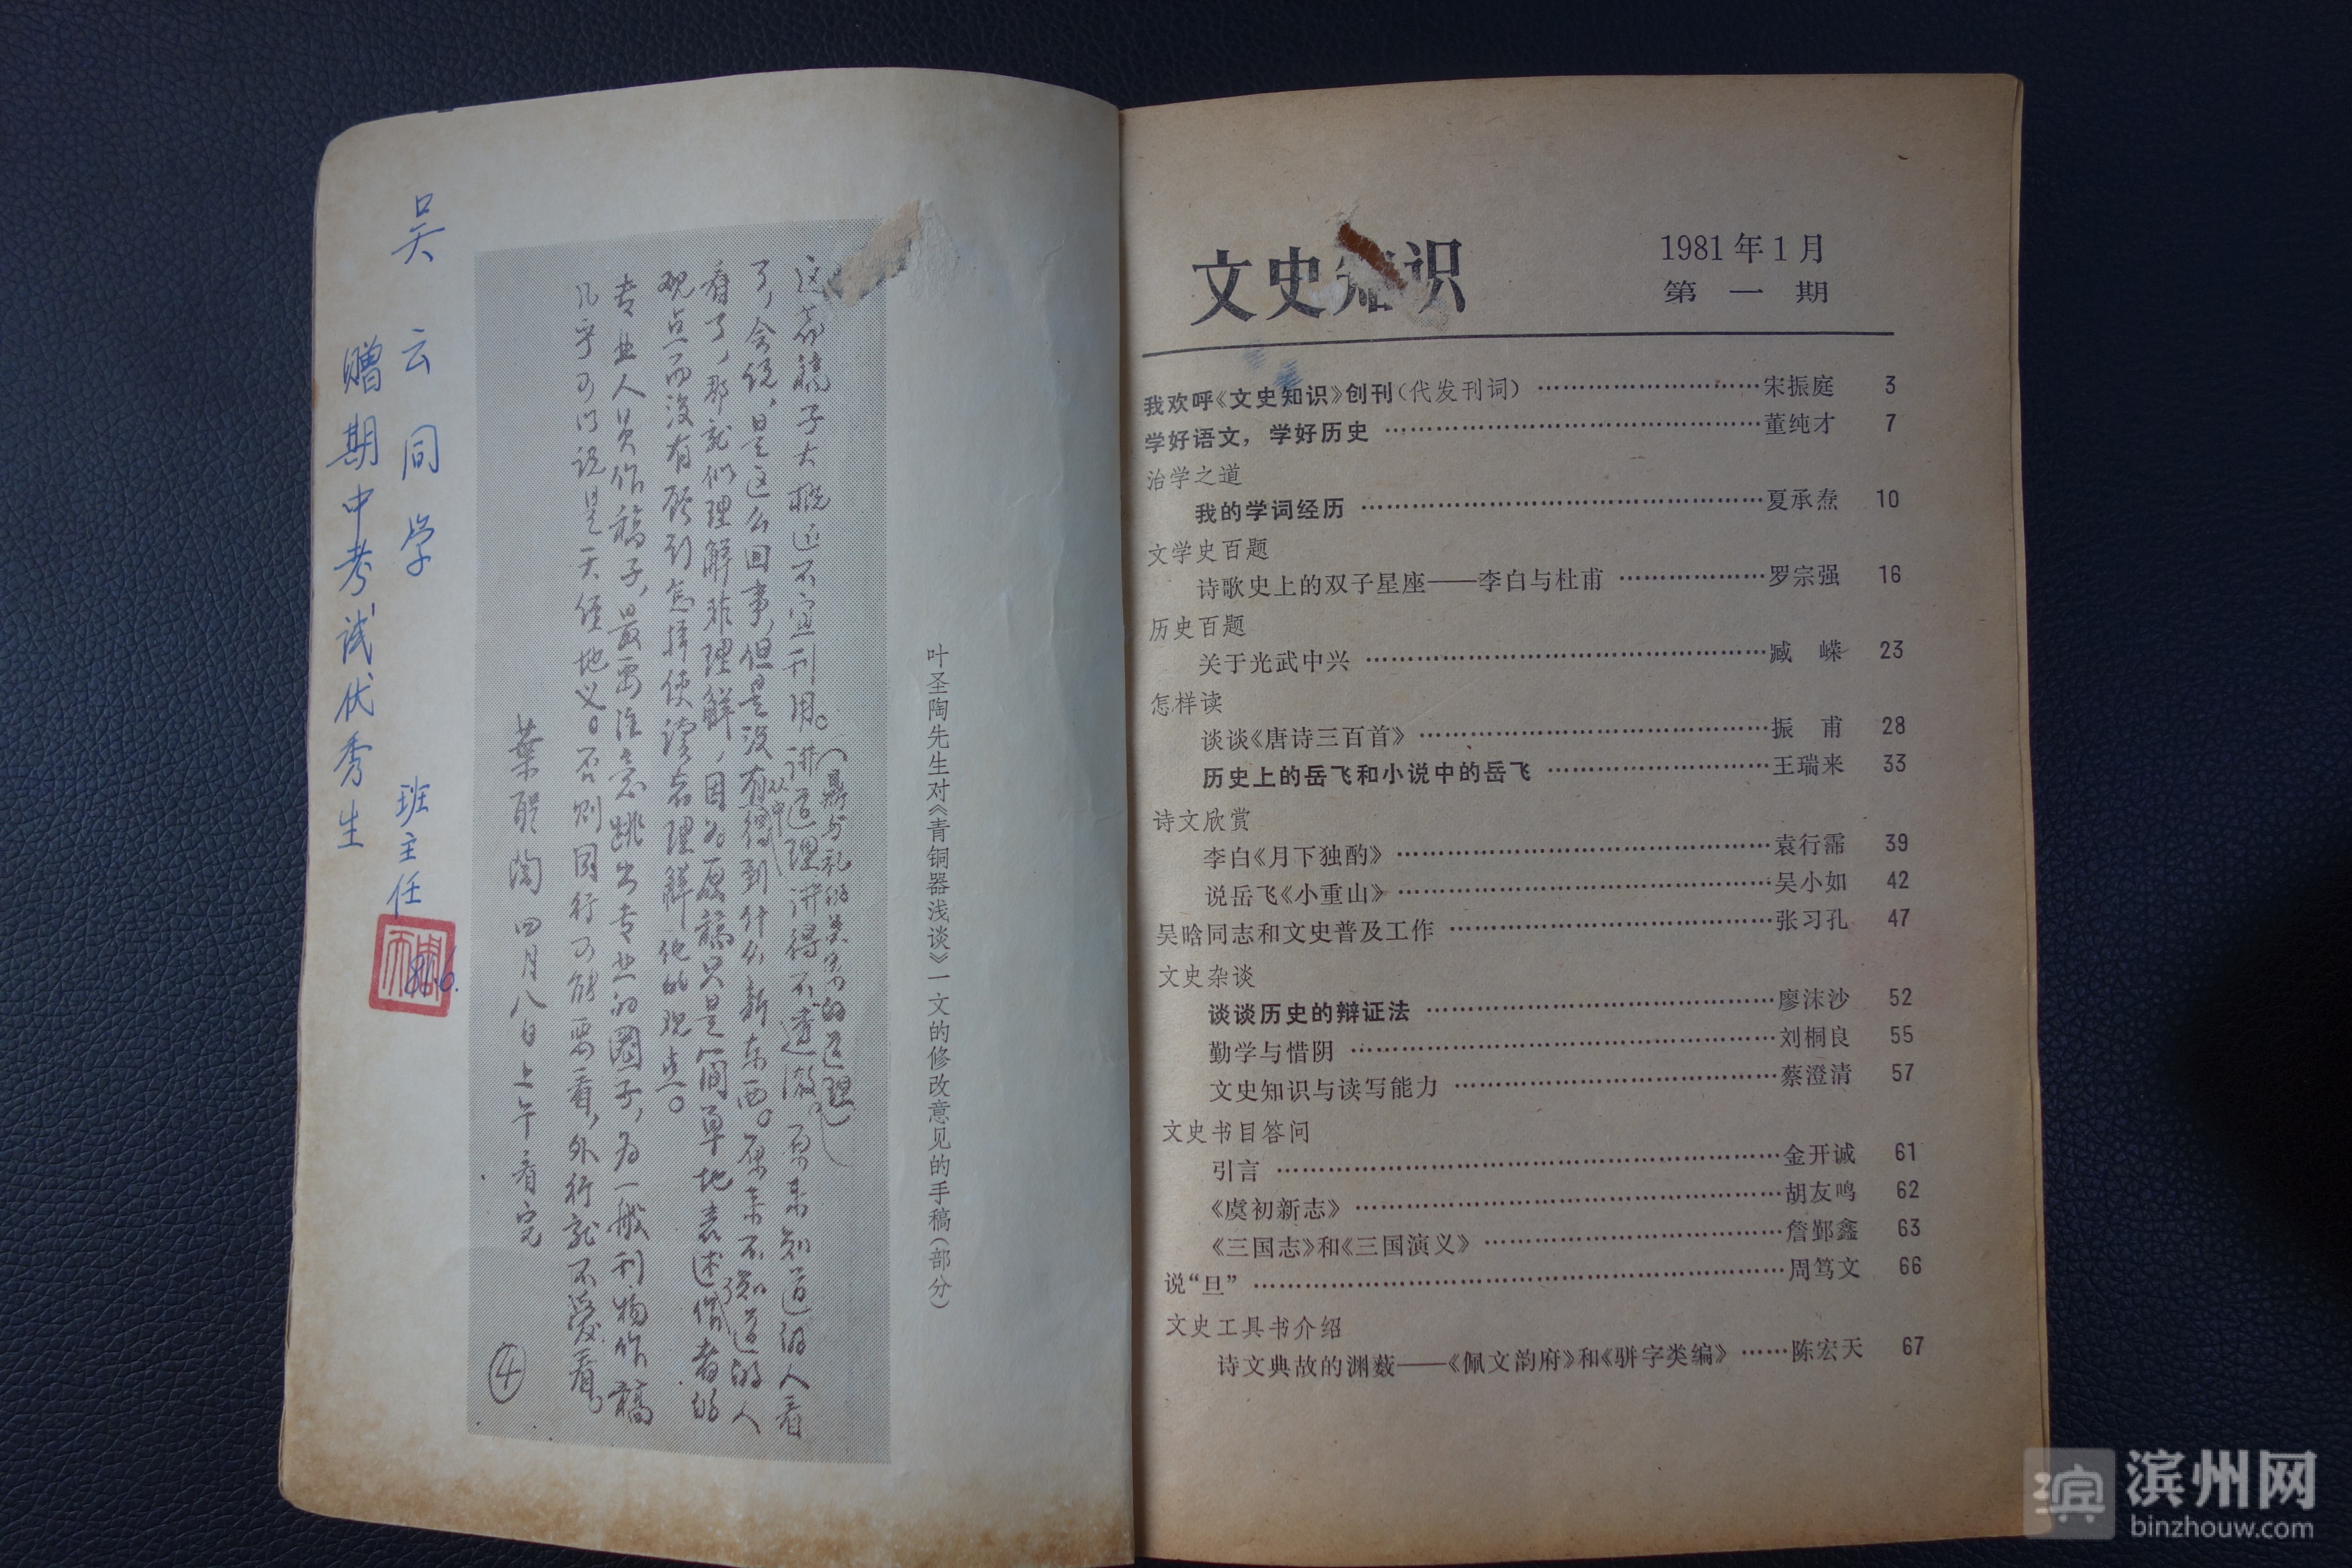 吴云同学
赠期中考试优秀生
班主任
81.6.
这篇稿子大概还不宜刊用。讲道理讲得不透澈。原来知道的人看
(鼎与礼的关系的道理)
了,会说,是这么回事,但是没有从中得到什么新东西。原来不知道的人
看了,那就似理解非理解,因为原稿只是简单地表述了作者的
观点而没有顾到怎样使读者理解他的观点。
专业人员作稿子,最要注意跳出专业的圈子,为一般刊物作稿
几乎可以说是天经地义。否则同行可能要看,外行就不爱看。
葉聖陶 四月八日上午看完
④
叶圣陶先生对《青铜器浅谈》一文的修改意见的手稿(部分)
文史知识
1981年1月
第一期
我欢呼《文史知识》创刊(代发刊词)……宋振庭 3
学好语文,学好历史……董纯才 7
治学之道
我的学词经历……夏承焘 10
文学史百题
诗歌史上的双子星座——李白与杜甫……罗宗强 16
历史百题
关于光武中兴……臧 嵘 23
怎样读
谈谈《唐诗三百首》……振 甫 28
历史上的岳飞和小说中的岳飞……王瑞来 33
诗文欣赏
李白《月下独酌》……袁行霈 39
说岳飞《小重山》……吴小如 42
吴晗同志和文史普及工作……张习孔 47
文史杂谈
谈谈历史的辩证法……廖沫沙 52
勤学与惜阴……刘桐良 55
文史知识与读写能力……蔡澄清 57
文史书目答问
引言……金开诚 61
《虞初新志》……胡友鸣 62
《三国志》和《三国演义》……詹鄞鑫 63
说“旦”……周笃文 66
文史工具书介绍
诗文典故的渊薮——《佩文韵府》和《骈字类编》……陈宏天 67
滨州网
binzhouw.com